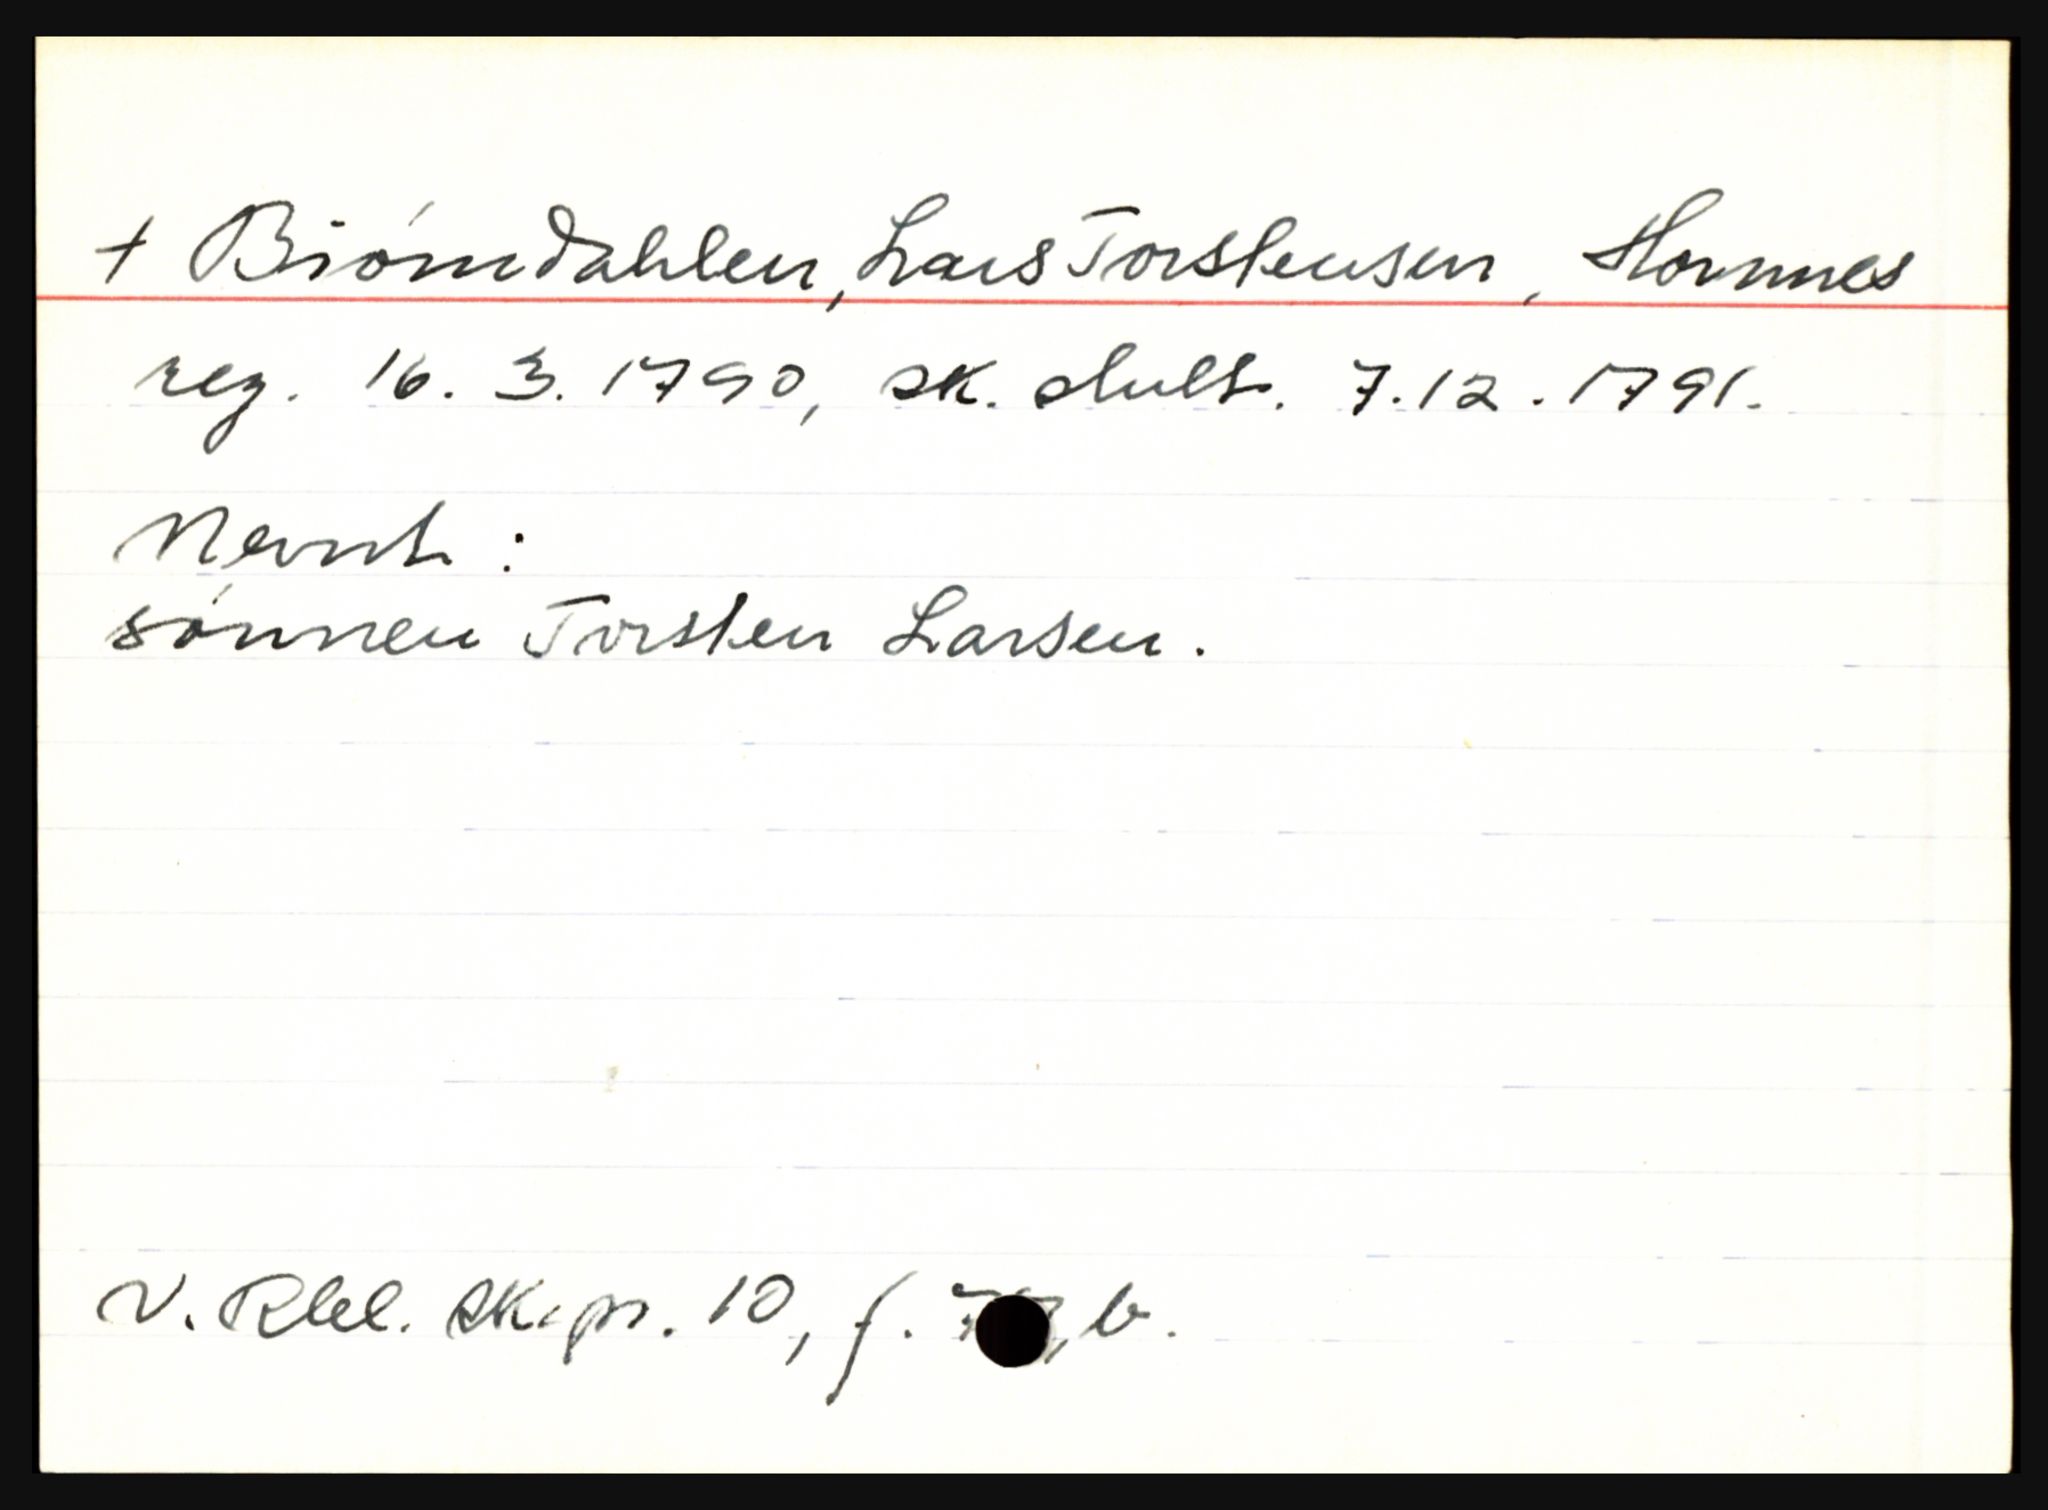 + Biørndahlen, Lars Torstensen, Hornnes
reg. 16. 3. 1790, sk. slutt. 7.12.1791.
Nevnt :
sønnen Torsten Larsen.
V. Rbl. sk.pr. 10, f. b.